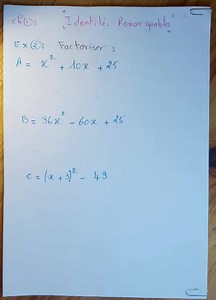 ch①: "Identités Remarquables"
Ex②: Factoriser :
A = x² + 10x + 25
B = 36x² - 60x + 25
C = (x + 3)² - 49